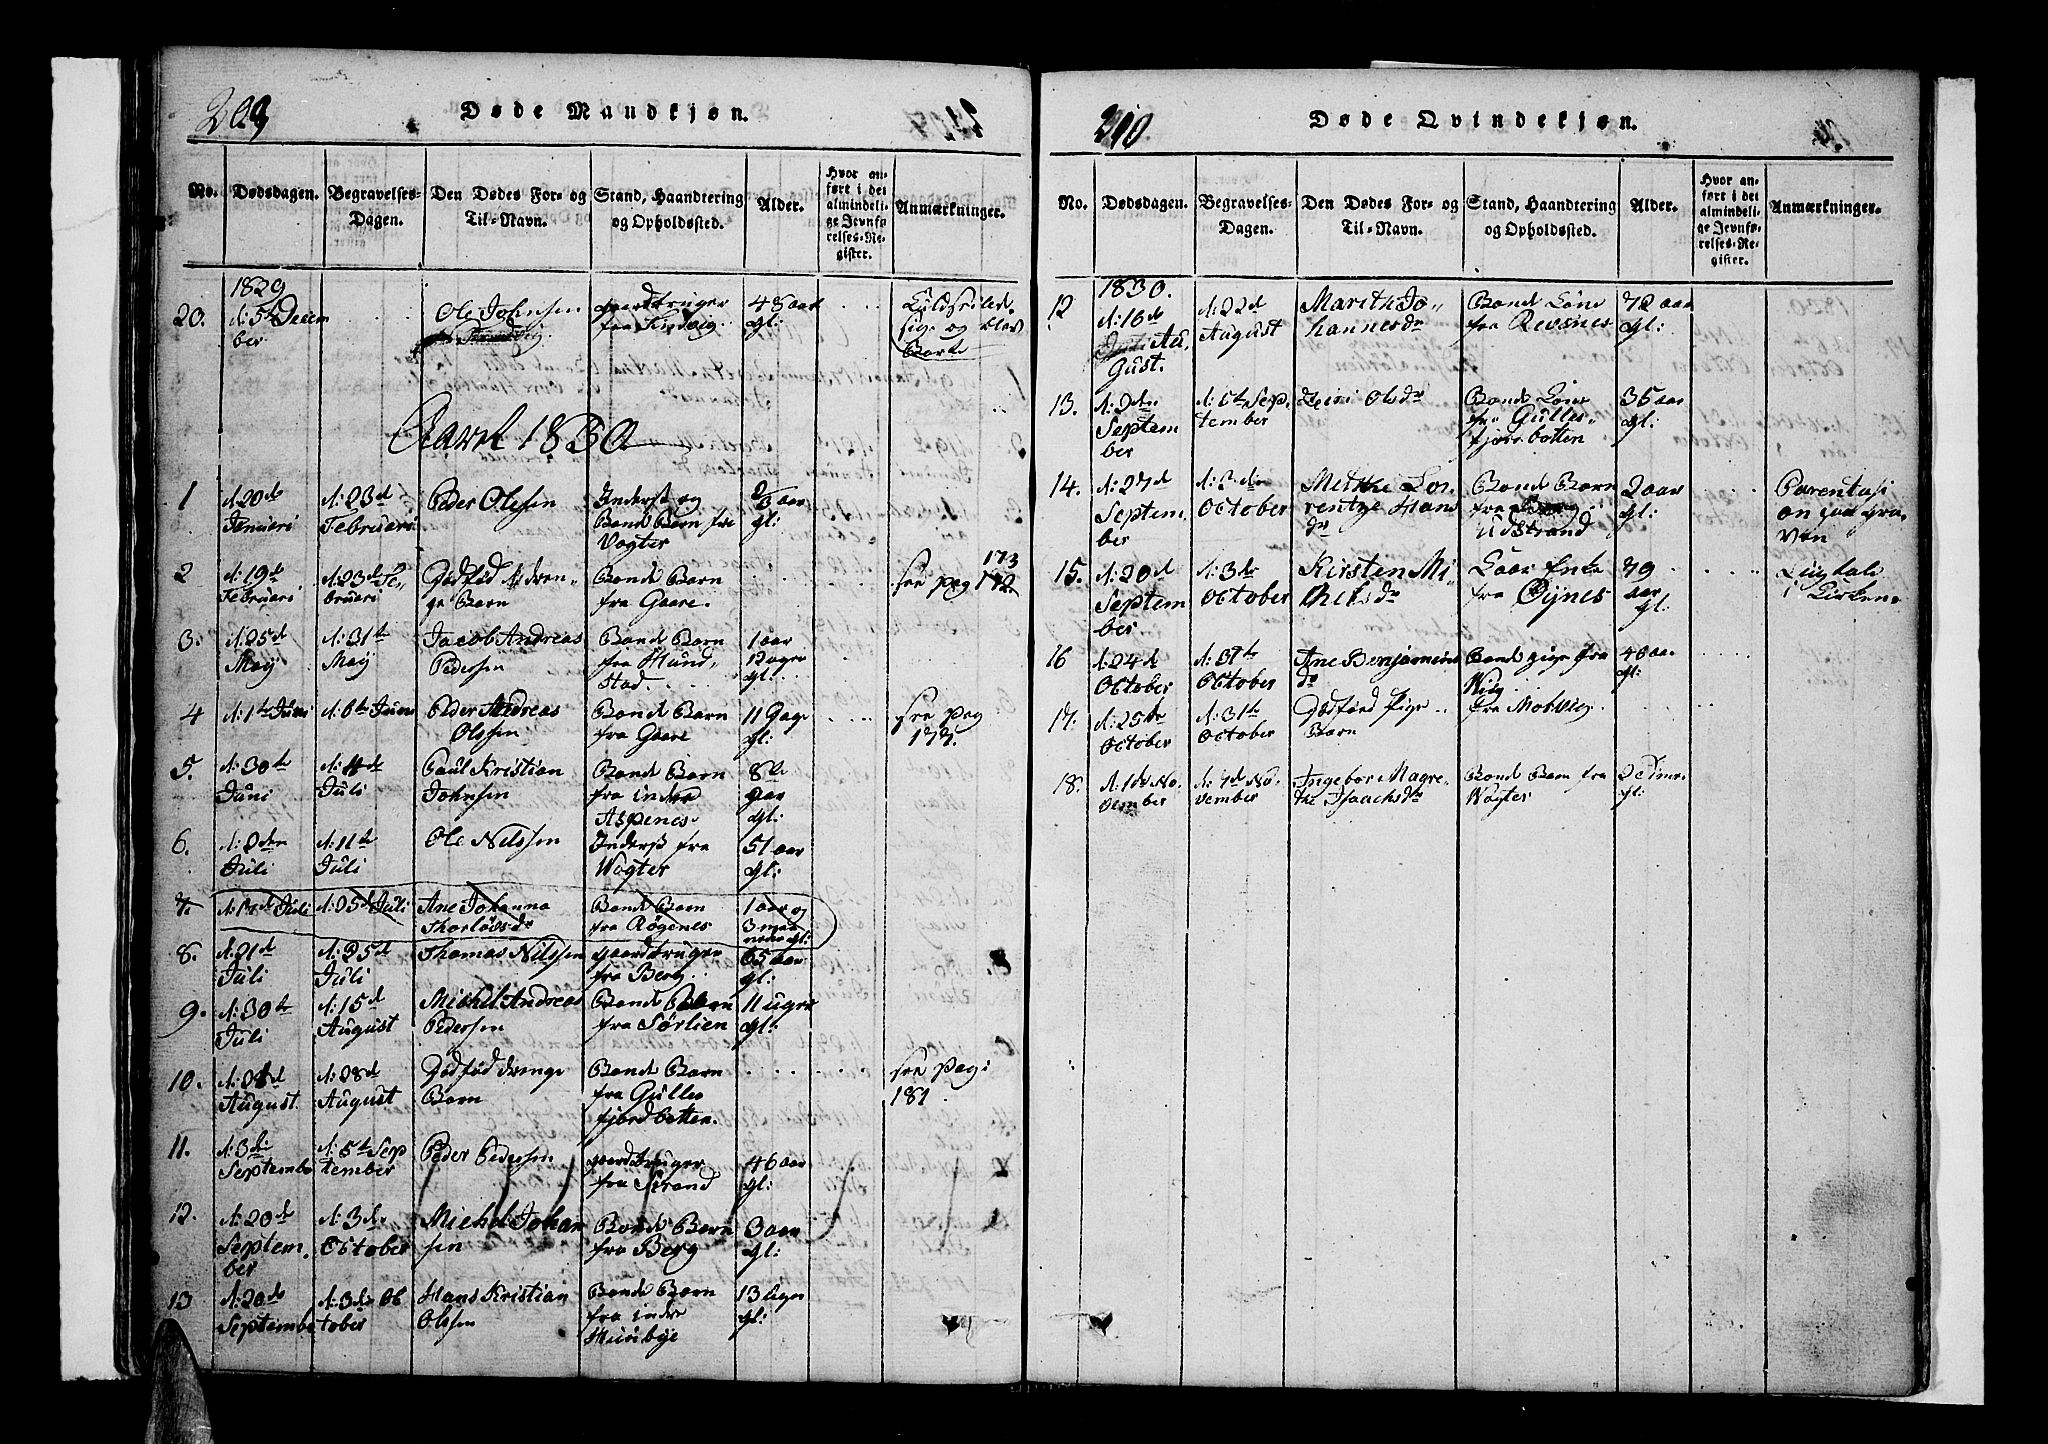 209
Døde Mandkjøn.
No.
Dødsdagen.
Begravelses-
Dagen.
Den Dødes For- og
Til-Navn.
Stand, Haandtering
og Opholdssted.
Alder.
Hvor an-
ført i det
almindeli-
ge Jevnfø-
relses-Re-
gister.
Anmærkninger.
1829
20.
d: 5te Decem
ber
Ole Johnsen
gaardbruger
fra
48 aar
gl:
sig og
Aaret 1830
1
d: 20de
Februari
d: 23d
Februari
Peder Olssen
Inderst og
Bonde Barn fra
Vogter
aar
gl:
2
d: 19de
Februari
d: 23de Fe,,
bruari
Dødfød dren-
ge Barn
Bonde Barn
fra Gaare.
see pag
173
172.
3.
d: 25d
Maÿ
d: 31te
Maÿ
Jacob Andreas
Pedersen
Bonde Barn
fra Hund,,
stad
1 aar
gl:
4
d: 1te Juni
d: 6te Juni
Peder Andreas
Olssen
Bonde Barn
fra Gaare
11 Dage
gl:
see pag
177.
5.
d: 30te
Juni
d: 4de
Juli
Paul Kristian
Johnsen
Bonde Barn
fra inder
Aspenes.
gl:
6.
d: 2den
Juli
d: 11te
Juli
Ole Nilssen
Inderst fra
Vogter
51 aar
gl:
7.
d: 17de Juli
d: 25d Juli
Ane Johanna
Thorløvsdr
Bonde Barn
fra Røgenes
1 aar og
3 maa
neder gl:
8.
d: 21d
Juli
d: 25d
Juli
Thomas Nilssen
gaardbruger
fra Berg
65 aar
gl:
9.
d: 30te
Juli
d: 15d
August
Michel Andreas
Pedersen
Bonde Barn
fra Sørlien
11 uger
gl:
10.
August
d: 28de
August
Dødfød drenge
Barn
Bonde Barn
fra Gulles
fjordbotten.
see pag:
181
11.
d: 3de
September
d: 5te Sep
tember
Peder Pedersen
gaardbruger
fra Strand
46 aar
gl:
12.
d: 20de
Septem
ber
d: 3de
October
Michel Johan
sen
Bonde Barn
fra Berg
3 aar
gl:
13
d: 20de
September
d: 3de Oc
tober
Hans Kristian
Olssen
Bonde Barn
fra inder
Huubÿe
13 uger
gl:
210
Døde Qvindekjøn.
No.
Dødsdagen.
Begravelses-
Dagen.
Den Dødes For- og
Til-Navn.
Stand, Haandtering
og Opholdssted.
Alder.
Hvor an-
ført i det
almindeli-
ge Jevnfø-
relses-Re-
gister.
Anmærkninger.
1830.
12
d: 16de
Au,
gust.
d: 22d
August
Marith Jo,,
hannesdr
Bonde Kone
fra Revsnes
72 aar
gl:
13.
d: 2den
Septem
ber
d: 5te Sep,,
tember
Siri Olsdr
Bonde Kone
fra Gulles,,
fjordbotten
36 aar
gl:
14.
d: 27de
Septem,
ber
d: 3den
October
Mette Lor
rentze Hans
dr
Bonde Barn
fra
Udstrand
2 aar
gl:
Parentasi
on paa gra,
ven
15.
d: 20de
Septem
ber
d: 3de
October
Kirsten Mi
chelsdr
Enke
fra Øÿnes
79
aar
gl:
i Kirken
16
d: 24de
October
d: 31te
October
Ane Benjamins
dr
Bonde pige fra
40 aar
gl:
17.
d: 25de
October
d: 31te
October
Dødfød pige
Barn
fra Molvig
18.
d: 1de No
vember
d: 7de No
vember
Ingebor Magre
the Isaachsdr
Bonde Barn fra
Vogter
gl: